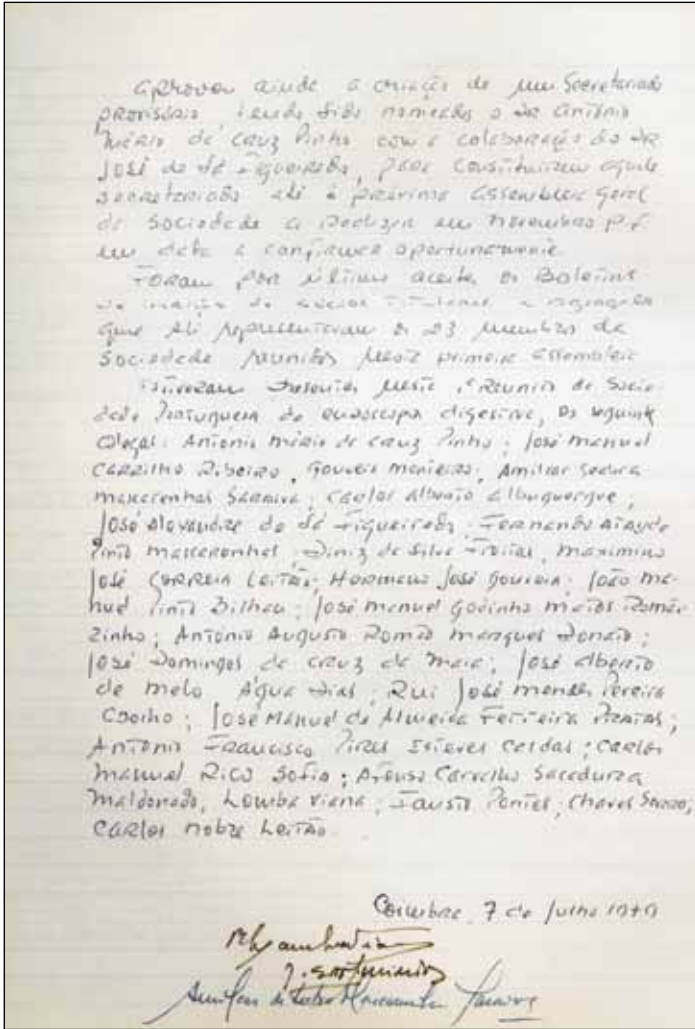 aprovou ainda a criação de um Secretariado
provisório tendo sido nomeados o Dr António
Mário da Cruz Pinho com a colaboração do Dr
José de Sá Figueiredo, para constituirem aquele
secretariado até à próxima Assembleia Geral
da Sociedade a realizar em Novembro p.f.
em data a confirmar oportunamente.
Foram por último aceites os Boletins
de de sócios titulares
que ali representaram os 23 membros da
Sociedade reunidos nesta primeira assembleia
Estiveram presentes nesta 1ª Reunião da Socie-
dade Portuguesa de endoscopia digestiva, os seguintes
colegas: António Mário da Cruz Pinho; José Manuel
Carrilho Ribeiro, Gouveia Monteiro; Amilcar
Mascarenhas Saraiva; Carlos Alberto Albuquerque;
José Alexandre de Sá Figueiredo; Fernando
Pinto Mascarenhas; Diniz da Silva Freitas, Maximino
José Correia Leitão; Hermano José Gouveia; João Ma-
nuel Pinto Bilhau; José Manuel Godinho Matos Romão-
zinho; António Augusto Romão Marques Donato;
José Domingos da Cruz da Maia; José Alberto
de Melo Água Dias; Rui José Mendes Pereira
Coelho; José Manuel de Almeida Ferreira Pratas;
António Francisco Pires Esteves Caldas; Carlos
Manuel Rico Sofia; Afonso Carvalho Sacadura
Maldonado, Lomba Viana; Fausto Pontes, Chaves
Carlos Nobre Leitão.
Coimbra, 7 de Julho 1979
Amilcar Mascarenhas Saraiva